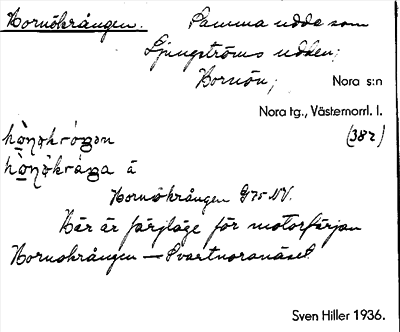 Hornökrången. Samma udde som
Ljungströms udden;
Hornön; Nora s:n
Nora tg., Västernorrl. l.
(382)
Hornökrången G 75 NV.
Här är färjläge för motorfärjan
Hornökrången — Svartnoranäset.
Sven Hiller 1936.